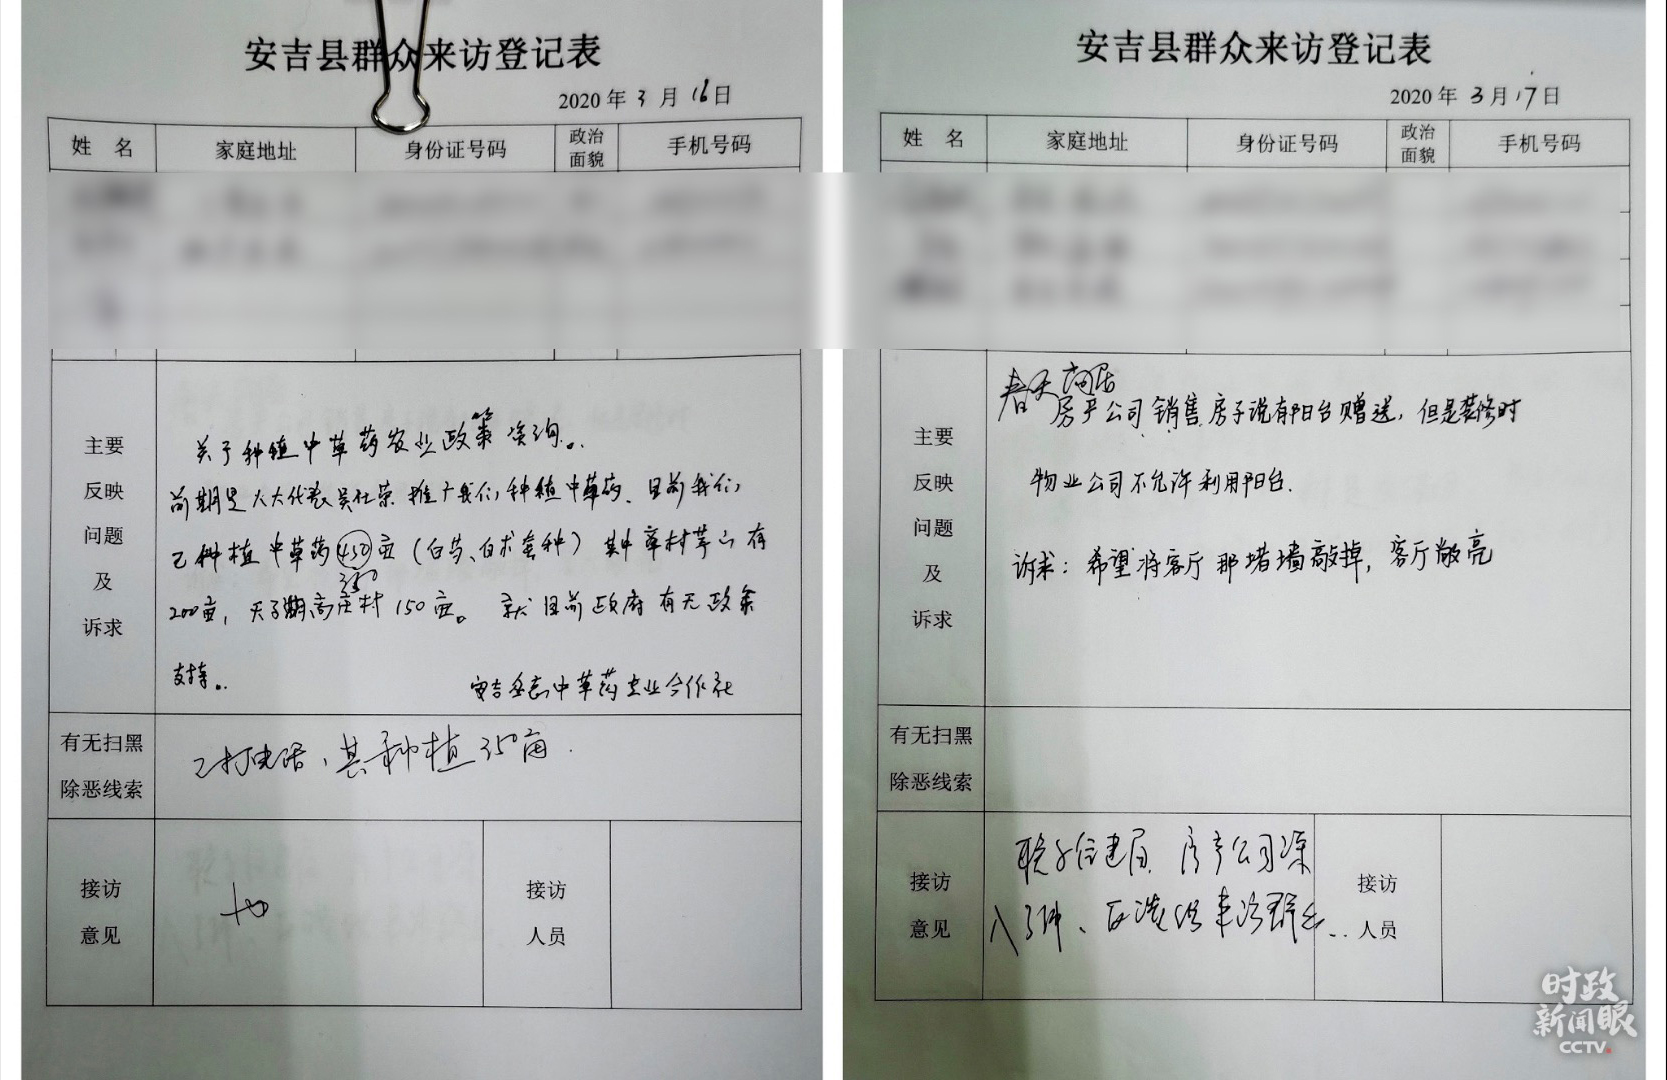 安吉县群众来访登记表
2020年3月16日
姓 名 家庭地址 身份证号码 政治面貌 手机号码
主要反映问题及诉求
关于种植中草药农业政策咨询。
前期是人大代表吴仕荣推广我们种植中草药、目前我们
已种植中草药450亩（白芍、白术套种）其中 有
350
200亩，天子湖高庄村150亩。就目前政府有无政策
支持。
安吉 中草药专业合作社
有无扫黑除恶线索
已打电话、其种植350亩.
接访意见
接访人员
安吉县群众来访登记表
2020年3月17日
姓 名 家庭地址 身份证号码 政治面貌 手机号码
主要反映问题及诉求
春天
房产公司销售房子说有阳台赠送，但是装修时
物业公司不允许利用阳台.
诉求：希望将客厅那堵墙敲掉，客厅敞亮
有无扫黑除恶线索
接访意见
联系住建局、房产公司深
入了解、反馈给来访群众..
接访人员
时政
新闻眼
CCTV